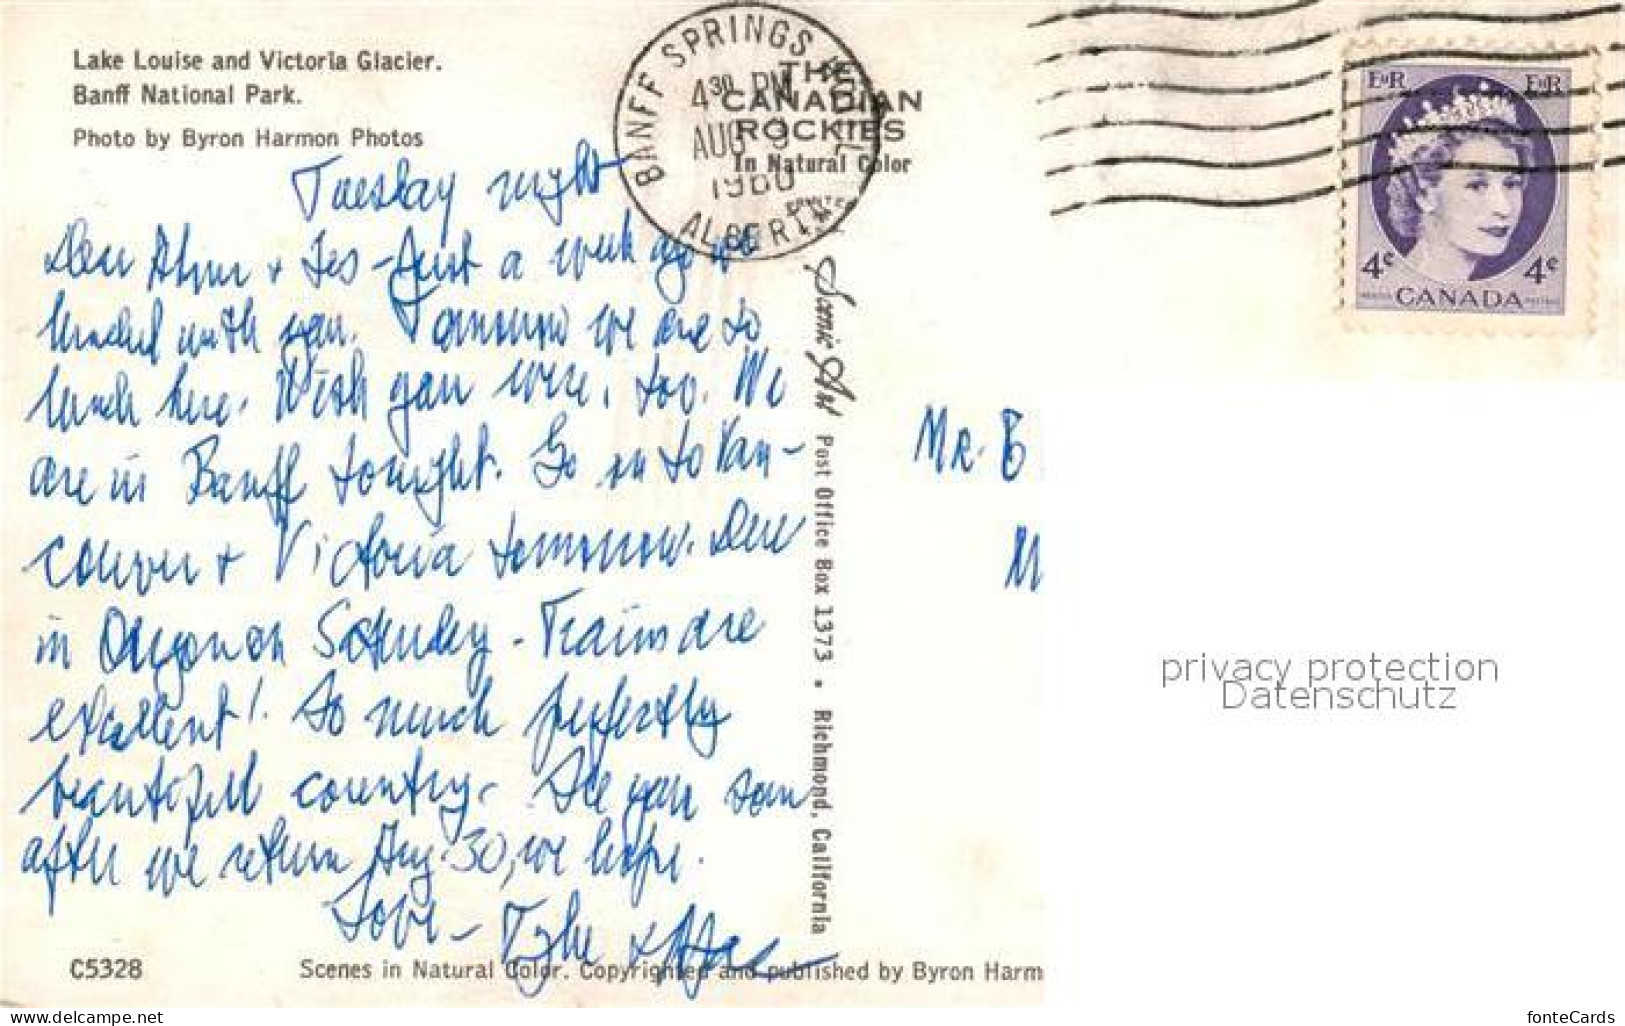 Lake Louise and Victoria Glacier.
Banff National Park.
Photo by Byron Harmon Photos
THE
CANADIAN
ROCKIES
In Natural Color
PRINTED
BANFF SPRINGS
4 30 PM
AUG 9
1960
ALBERTA
E II R
E II R
4¢
4¢
CANADA
Tuesday night
Dear & Les - Just a week ago we
lunched with you. Tomorrow we are to
lunch here. Wish you were, too. We
are in Banff tonight. Go on to Van-
couver & Victoria tomorrow. Due
in Oregon on Saturday - Trains are
excellent! So much perfectly
beautiful country. See you soon
after we return Aug. 30, we hope.
Love -
Scenic Art Post Office Box 1373 • Richmond, California
Mr. B
M
privacy protection
Datenschutz
C5328
Scenes in Natural Color. Copyrighted and published by Byron Harm
www.delcampe.net
fonteCards